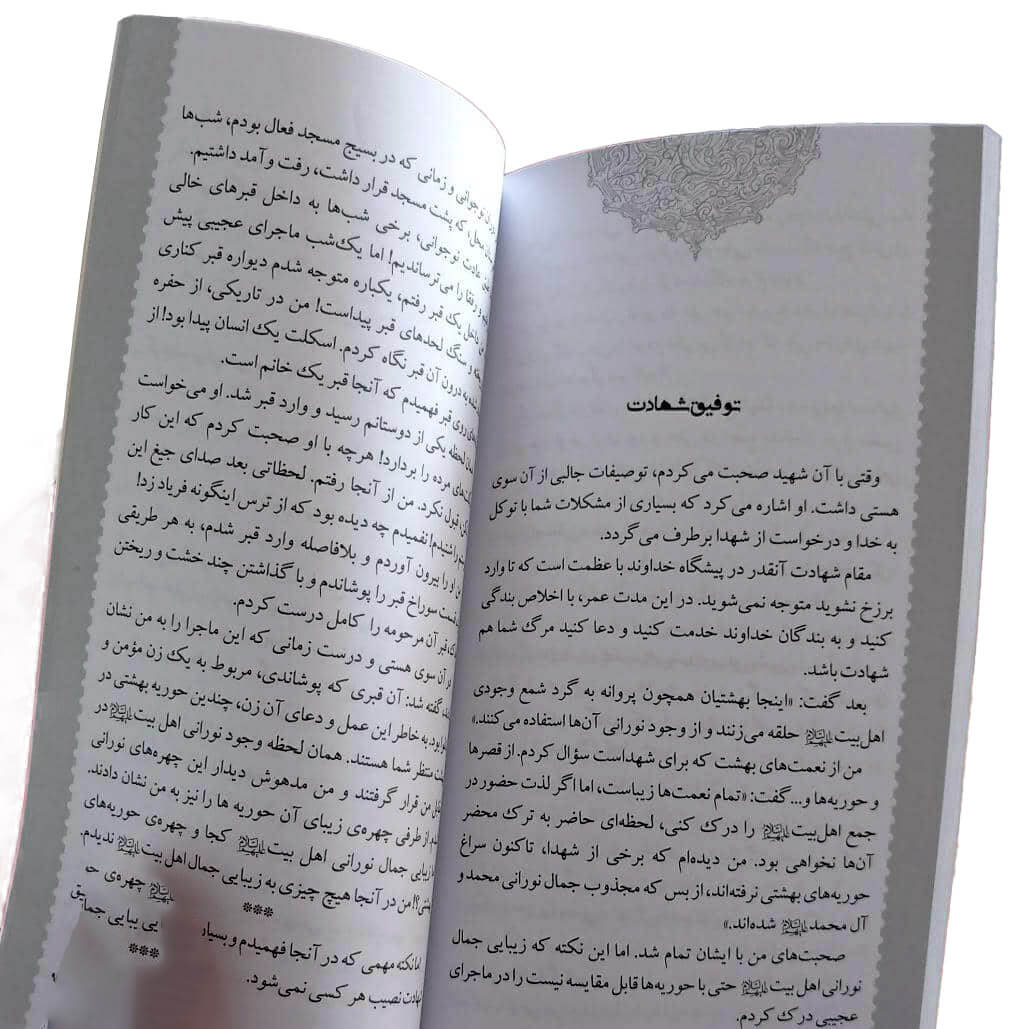 توفیق شهادت
وقتی با آن شهید صحبت می‌کردم، توصیفات جالبی از آن سوی
هستی داشت. او اشاره می‌کرد که بسیاری از مشکلات شما با توکل
به خدا و درخواست از شهدا برطرف می‌گردد.
مقام شهادت آنقدر در پیشگاه خداوند با عظمت است که تا وارد
برزخ نشوید متوجه نمی‌شوید. در این مدت عمر، با اخلاص بندگی
کنید و به بندگان خداوند خدمت کنید و دعا کنید مرگ شما هم
شهادت باشد.
بعد گفت: «اینجا بهشتیان همچون پروانه به گرد شمع وجودی
اهل‌بیت علیهم‌السلام حلقه می‌زنند و از وجود نورانی آن‌ها استفاده می‌کنند.»
من از نعمت‌های بهشت که برای شهداست سؤال کردم. از قصرها
و حوریه‌ها و... گفت: «تمام نعمت‌ها زیباست، اما اگر لذت حضور در
جمع اهل‌بیت علیهم‌السلام را درک کنی، لحظه‌ای حاضر به ترک محضر
آن‌ها نخواهی بود. من دیده‌ام که برخی از شهدا، تاکنون سراغ
حوریه‌های بهشتی نرفته‌اند، از بس که مجذوب جمال نورانی محمد و
آل محمد علیهم‌السلام شده‌اند.»
صحبت‌های من با ایشان تمام شد. اما این نکته که زیبایی جمال
نورانی اهل‌بیت علیهم‌السلام حتی با حوریه‌ها قابل مقایسه نیست را در ماجرای
عجیبی درک کردم.
نوجوانی و زمانی که در بسیج مسجد فعال بودم، شب‌ها
محل، که پشت مسجد قرار داشت، رفت و آمد داشتیم.
عادت نوجوانی، برخی شب‌ها به داخل قبرهای خالی
و رفقا را می‌ترساندیم! اما یک‌شب ماجرای عجیبی پیش
داخل یک قبر رفتم، یکباره متوجه شدم دیواره قبر کناری
و سنگ لحدهای قبر پیداست! من در تاریکی، از حفره
به درون آن قبر نگاه کردم. اسکلت یک انسان پیدا بود! از
روی قبر فهمیدم که آنجا قبر یک خانم است.
لحظه یکی از دوستانم رسید و وارد قبر شد. او می‌خواست
مرده را بردارد! هرچه با او صحبت کردم که این کار
قبول نکرد. من از آنجا رفتم. لحظاتی بعد صدای جیغ این
را شنیدم! نفهمیدم چه دیده بود که از ترس اینگونه فریاد زد!
او را بیرون آوردم و بلافاصله وارد قبر شدم، به هر طریقی
سوراخ قبر را پوشاندم و با گذاشتن چند خشت و ریختن
قبر آن مرحومه را کامل درست کردم.
آن سوی هستی و درست زمانی که این ماجرا را به من نشان
گفته شد: آن قبری که پوشاندی، مربوط به یک زن مؤمن و
بود. به خاطر این عمل و دعای آن زن، چندین حوریه بهشتی در
منتظر شما هستند. همان لحظه وجود نورانی اهل بیت علیهم‌السلام در
من قرار گرفتند و من مدهوش دیدار این چهره‌های نورانی
از طرفی چهره‌ی زیبای آن حوریه ها را نیز به من نشان دادند.
زیبایی جمال نورانی اهل بیت علیهم‌السلام کجا و چهره‌ی حوریه‌های
من در آنجا هیچ چیزی به زیبایی جمال اهل بیت علیهم‌السلام ندیدم.
***
علیهم‌السلام چهره‌ی
امانکته مهمی که در آنجا فهمیدم و
***
شهادت نصیب هر کسی نمی‌شود.
۹